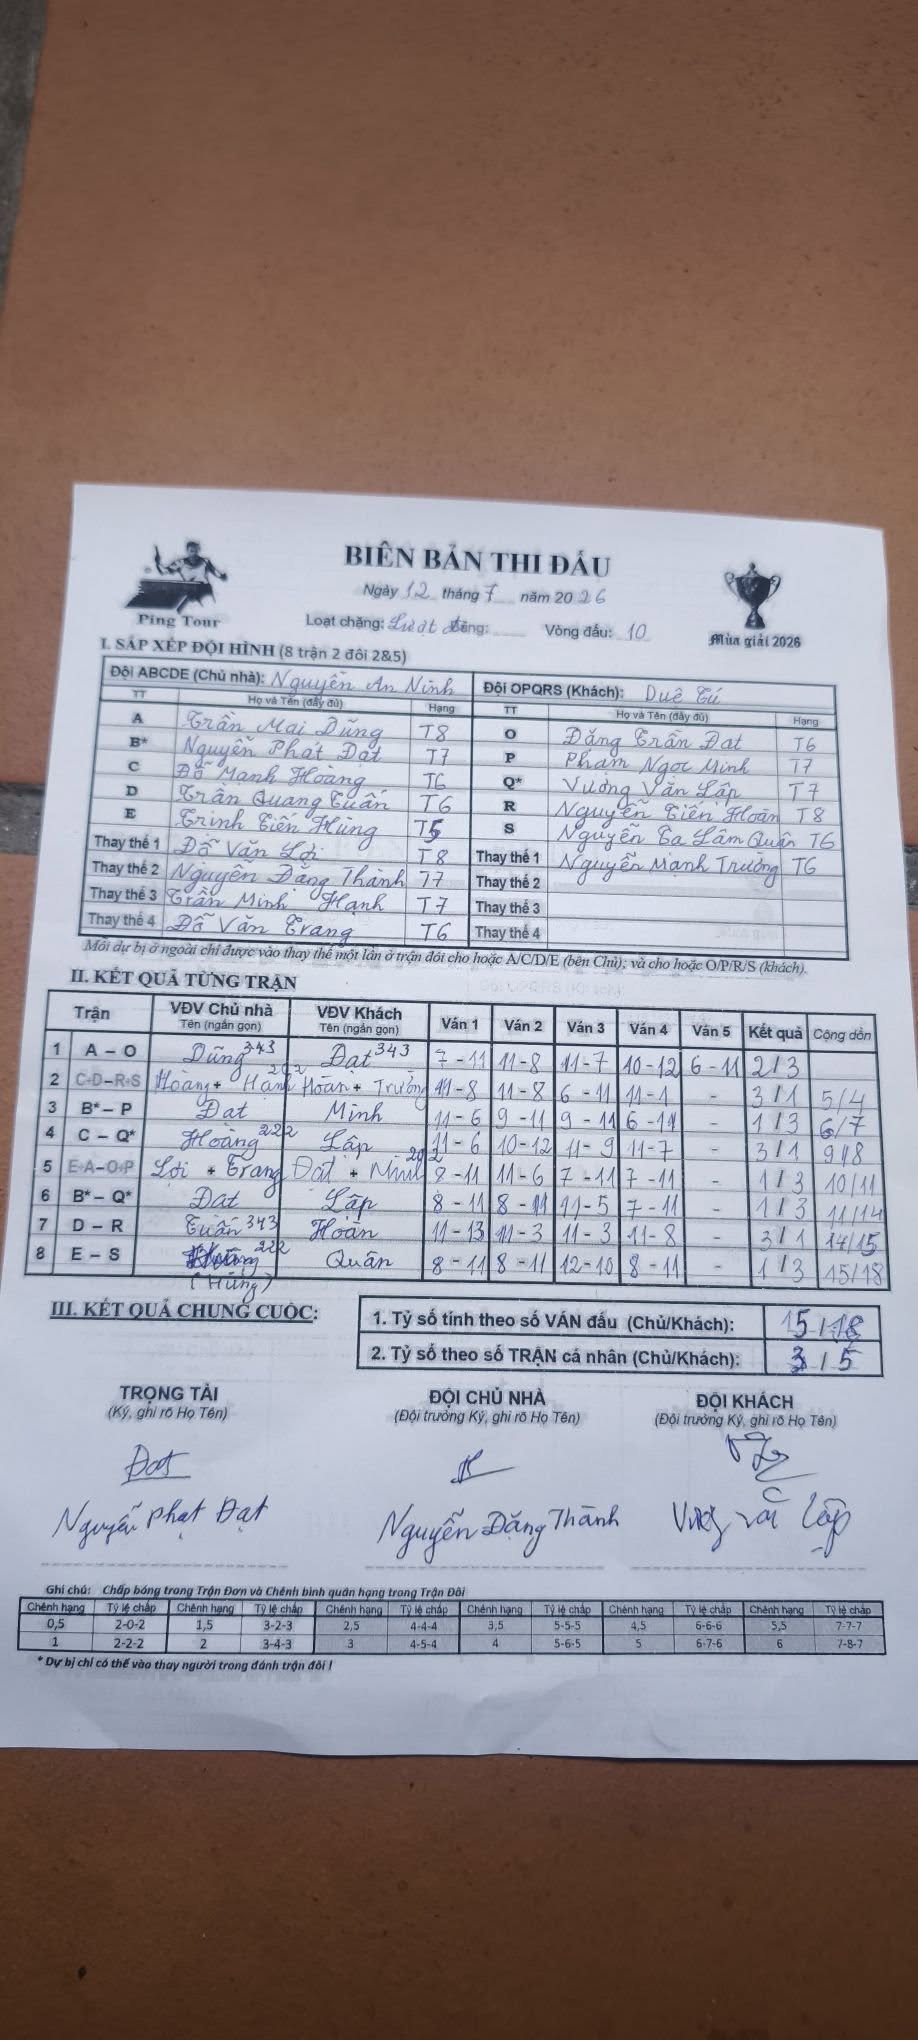 BIÊN BẢN THI ĐẤU
Ngày 12 tháng 7 năm 2026
Ping Tour
Loại chặng: Lượt Vòng đấu: 10
Mùa giải 2026
I. SẮP XẾP ĐỘI HÌNH (8 trận 2 đôi 2&5)
Đội ABCDE (Chủ nhà): Nguyễn An Ninh Đội OPQRS (Khách): Duê Tú
TT Họ và Tên (đầy đủ) Hạng TT Họ và Tên (đầy đủ) Hạng
A Trần Mai Dũng T8 O Đặng Trần Đạt T6
B* Nguyễn Phát Đạt T7 P Phạm Ngọc Minh T7
C Đỗ Mạnh Hoàng T6 Q* Vương Văn Lập T7
D Trần Quang Tuấn T6 R Nguyễn Tiến Hoàn T8
E Trịnh Tiến Hùng T5 S Nguyễn Tạ Lâm Quân T6
Thay thế 1 Đỗ Văn Lợi T8 Thay thế 1 Nguyễn Mạnh Trường T6
Thay thế 2 Nguyễn Đăng Thành T7 Thay thế 2
Thay thế 3 Trần Minh Hạnh T7 Thay thế 3
Thay thế 4 Đỗ Văn Trang T6 Thay thế 4
Mỗi dự bị ở ngoài chỉ được vào thay thế một lần ở trận đôi cho hoặc A/C/D/E (bên Chủ); và cho hoặc O/P/R/S (khách).
II. KẾT QUẢ TỪNG TRẬN
Trận VĐV Chủ nhà Tên (ngắn gọn) VĐV Khách Tên (ngắn gọn) Ván 1 Ván 2 Ván 3 Ván 4 Ván 5 Kết quả Cộng dồn
1 A – O Dũng 343 Đạt 343 7-11 11-8 11-7 10-12 6-11 2/3
2 C+D–R+S Hoàng + Hạnh 202 Hoàn + Trường 11-8 11-8 6-11 11-1 - 3/1 5/4
3 B* – P Đạt Minh 11-6 9-11 9-11 6-11 - 1/3 6/7
4 C – Q* Hoàng 222 Lập 11-6 10-12 11-9 11-7 - 3/1 9/8
5 E+A–O+P Lợi + Trang Đạt + Minh 202 8-11 11-6 7-11 7-11 - 1/3 10/11
6 B* – Q* Đạt Lập 8-11 8-11 11-5 7-11 - 1/3 11/14
7 D – R Tuấn 343 Hoàn 11-13 11-3 11-3 11-8 - 3/1 14/15
8 E – S 222 Quân 8-11 8-11 12-10 8-11 - 1/3 15/18
(Hùng)
III. KẾT QUẢ CHUNG CUỘC:
1. Tỷ số tính theo số VÁN đấu (Chủ/Khách): 15/18
2. Tỷ số theo số TRẬN cá nhân (Chủ/Khách): 3/5
TRỌNG TÀI ĐỘI CHỦ NHÀ ĐỘI KHÁCH
(Ký, ghi rõ Họ Tên) (Đội trưởng Ký, ghi rõ Họ Tên) (Đội trưởng Ký, ghi rõ Họ Tên)
Đạt
Nguyễn Phát Đạt Nguyễn Đăng Thành Vương Văn Lập
Ghi chú: Chấp bóng trong Trận Đơn và Chênh bình quân hạng trong Trận Đôi
Chênh hạng Tỷ lệ chấp Chênh hạng Tỷ lệ chấp Chênh hạng Tỷ lệ chấp Chênh hạng Tỷ lệ chấp Chênh hạng Tỷ lệ chấp Chênh hạng Tỷ lệ chấp
0,5 2-0-2 1,5 3-2-3 2,5 4-4-4 3,5 5-5-5 4,5 6-6-6 5,5 7-7-7
1 2-2-2 2 3-4-3 3 4-5-4 4 5-6-5 5 6-7-6 6 7-8-7
* Dự bị chỉ có thể vào thay người trong đánh trận đôi !